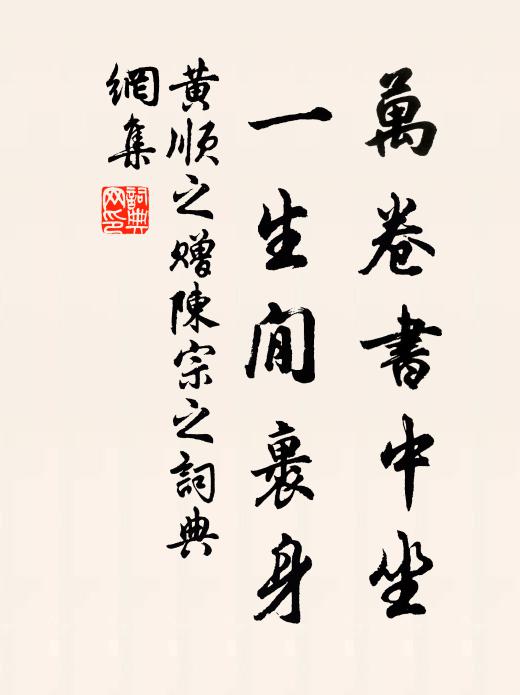 萬卷書中坐
一生閒裏身
黃順之贈陳宗之詞典
網集
詞典網印